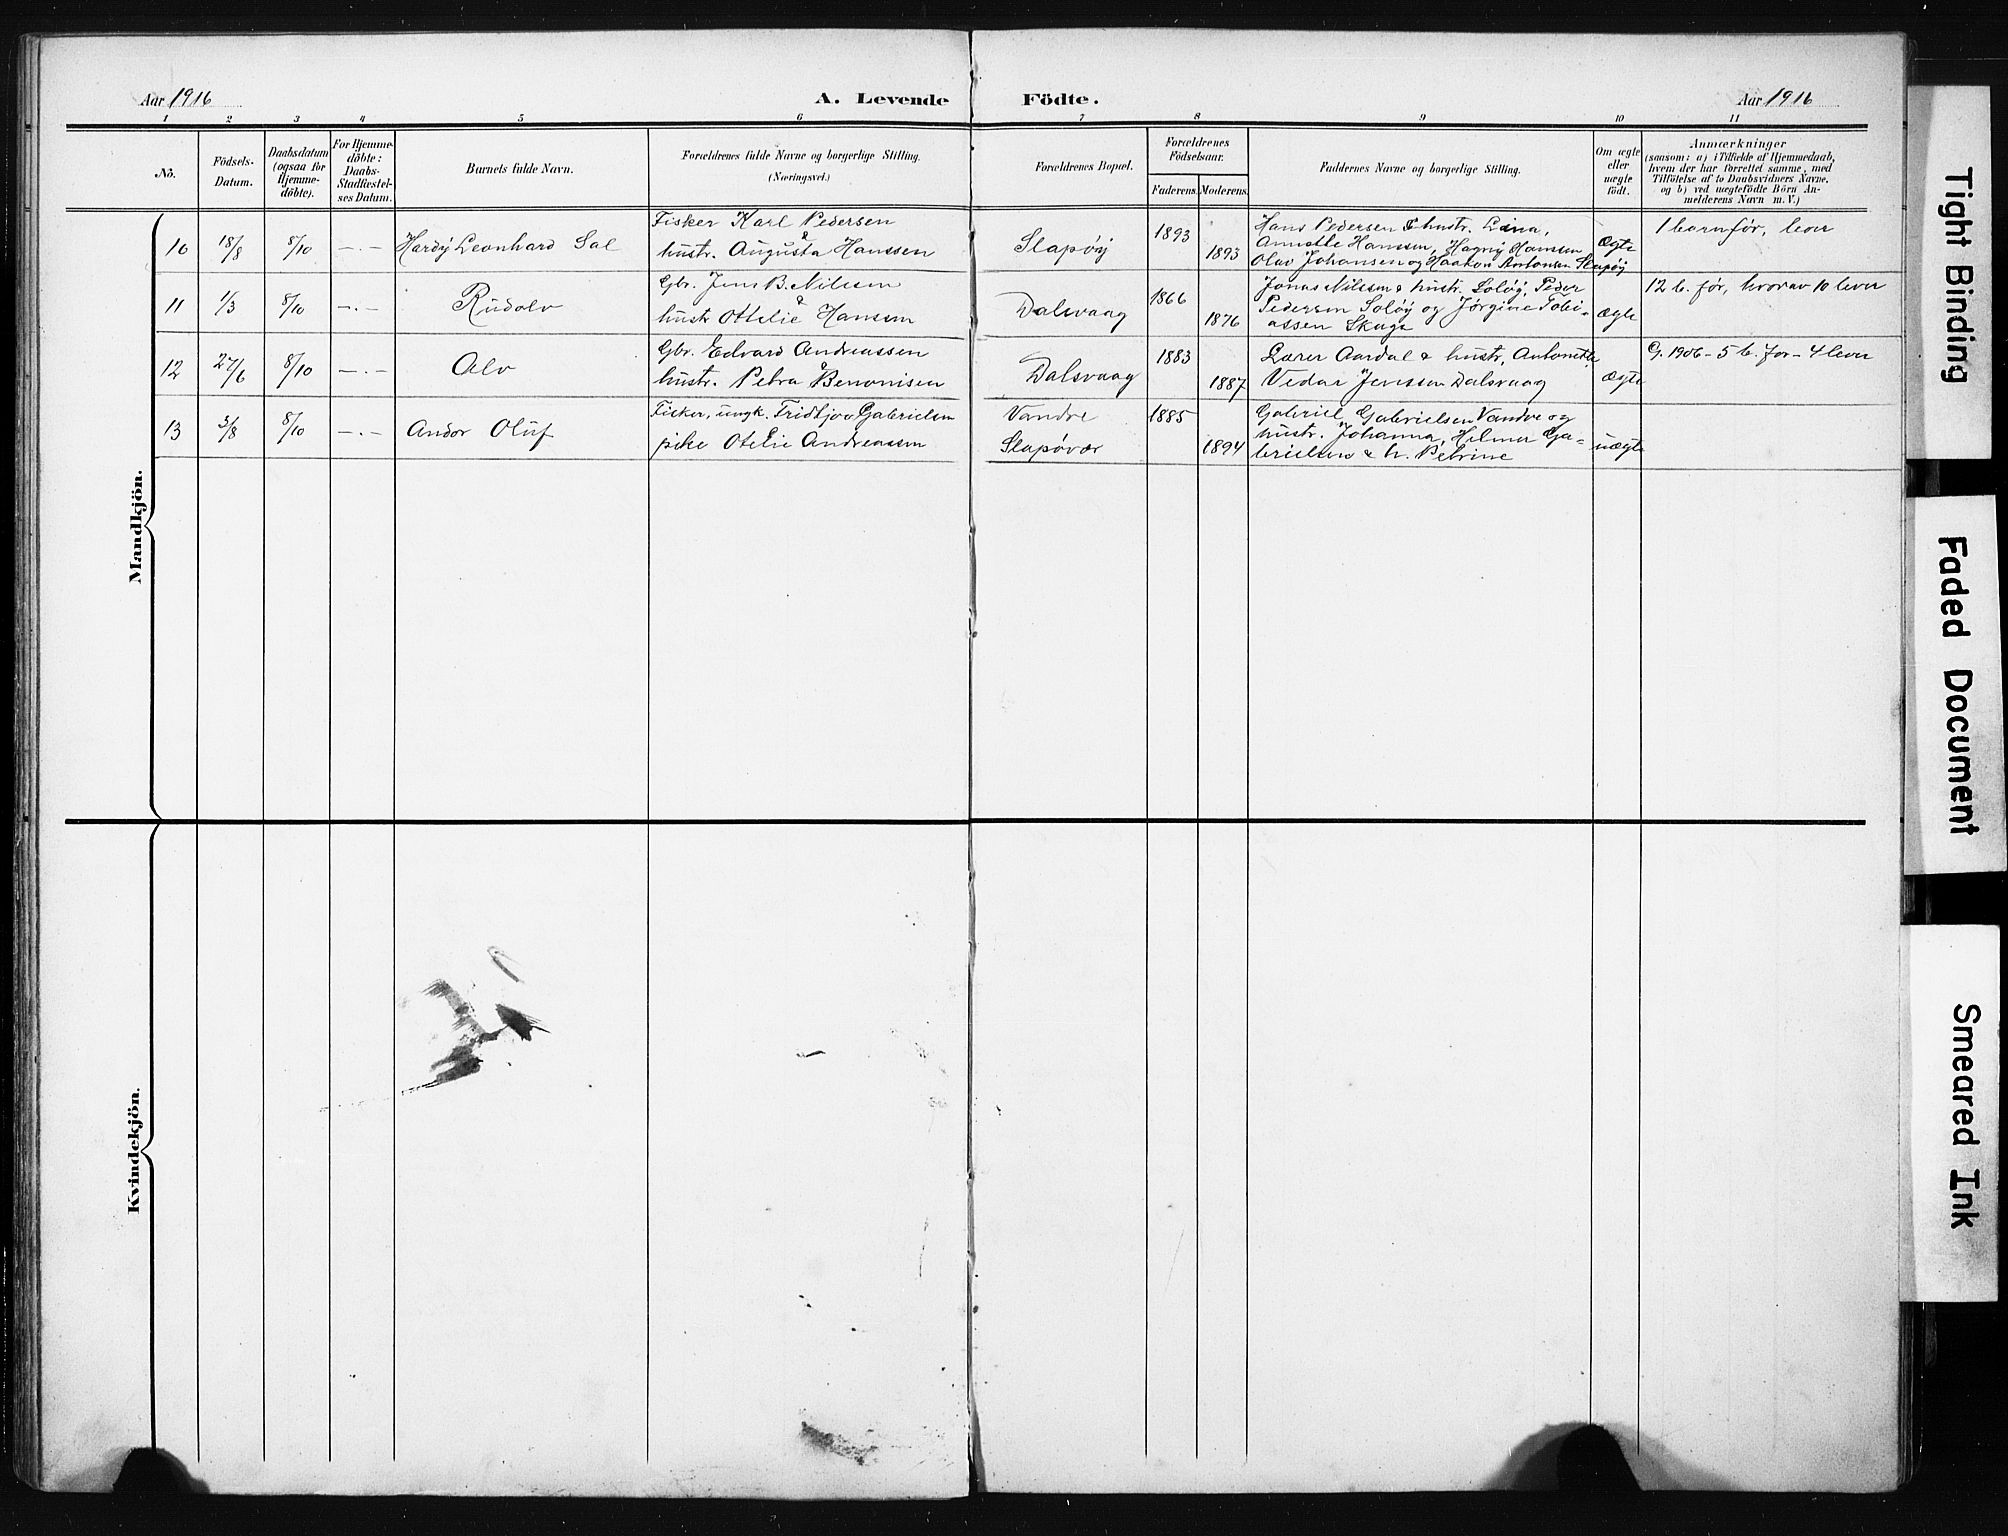 Aar 1916
A. Levende Födte.
Aar 1916
1 2 3 4 5 6 7 8 9 10 11
No.
Födsels-Datum.
Daabsdatum (ogsaa for Hjemme-döbte).
For Hjemme-döbte: Daabs-Stadfæstel-ses Datum.
Barnets fulde Navn.
Forældrenes fulde Navne og borgerlige Stilling.
(Næringsvei.)
Forældrenes Bopæl.
Forældrenes Födselsaar.
Faderens. Moderens.
Faddernes Navne og borgerlige Stilling.
Om ægte eller uægte födt.
Anmærkninger
(saasom: a) i Tilfælde af Hjemmedaab,
hvem der har forrettet samme, med
Tilföielse af to Daabsvidners Navne,
og b) ved uægtefödte Börn An-
melderens Navn m. V.)
Mandkjön.
10 18/8 8/10 -.- Hardy Leonhard Sal
Fisker Karl Pedersen
& hustr. Augusta Hanssen
Slapøy
1893
1893
Hans Pedersen & hustr. Lina,
Annette Hanssen, Hagny Hanssen
Olav Johansen og Haakon Antonsen Slapøy
ægte
1 barn før, lever
11 1/3 8/10 -.- Rudolv
Gbr. Jens B. Nilssen
& hustr Ottelie Hansen
Dalsvaag
1866
1876
Jonas Nilssen & hustr. Soløy, Peder
Pedersen Soløy og Jørgine Tobi=
assen Skage
ægte
12 b. før, hvorav 10 lever
12 27/6 8/10 -.- Alv
Gbr. Edvard Andreassen
& hustr. Petra Benonisen
Dalsvaag
1883
1887
Lærer Aardal & hustr. Antonette,
Vedar Jenssen Dalsvaag
ægte
G. 1906 - 5 b. før - 4 lever
13 3/8 8/10 -.- Andor Oluf
Fisker, ungk. Fridtjov Gabrielsen
& pike Otelie Andreassen
Vandve
Slapøvær
1885
1894
Gabriel Gabrielsen Vandve og
hustr. Johanna, Hilmer Ga=
brielsen & h. Petrine
uægte
Kvindekjön.
Tight Binding
Faded Document
Smeared Ink